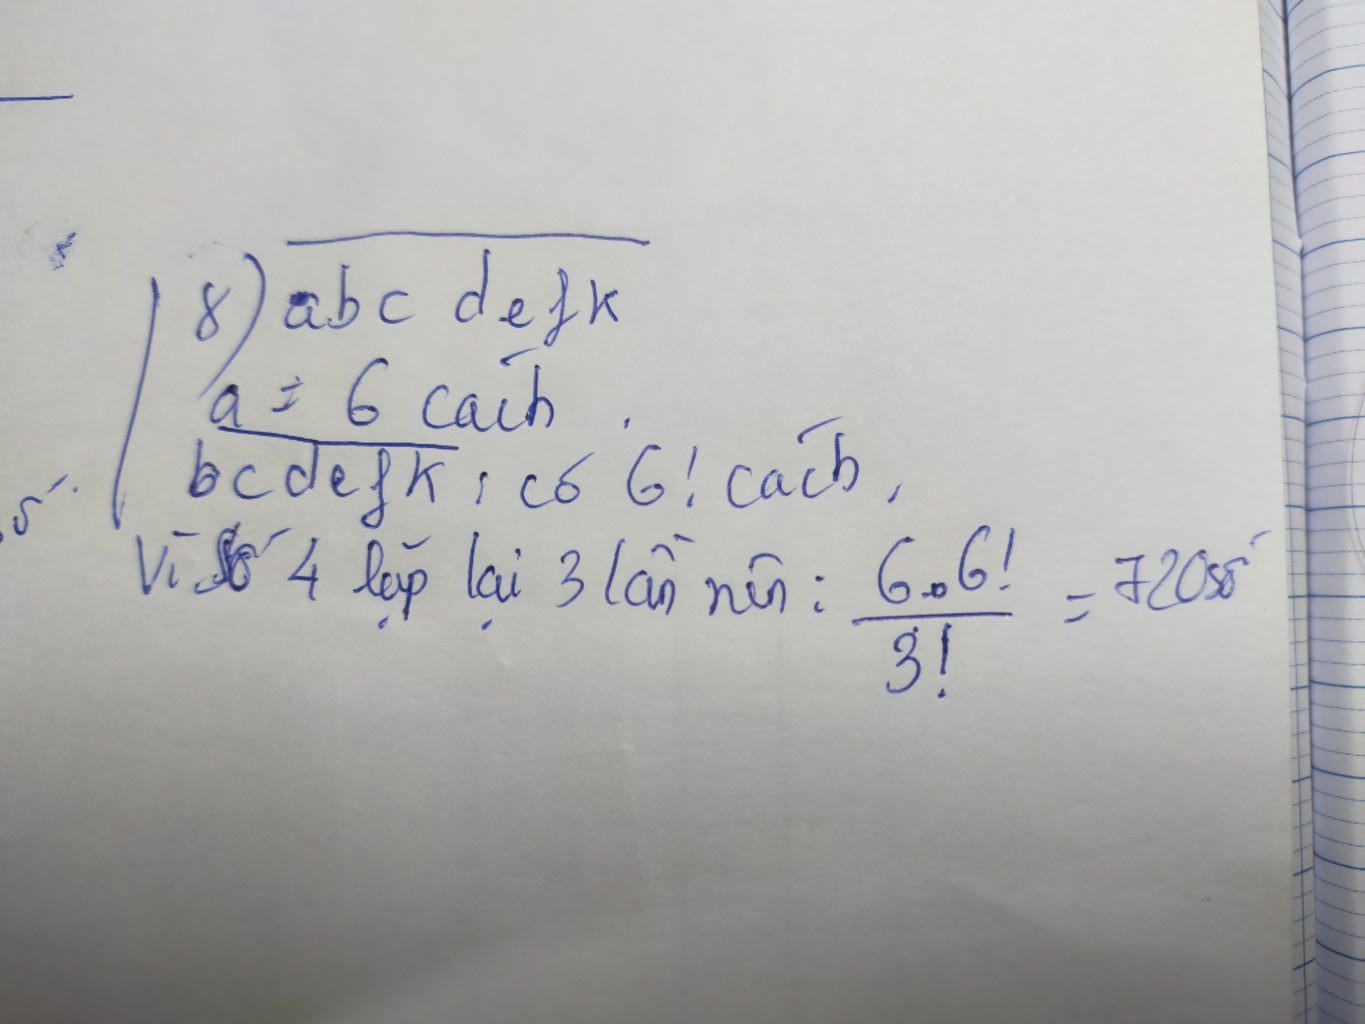 8) abc defk
a = 6 cách.
bcdefk : có 6! cách,
Vì số 4 lặp lại 3 lần nên : 6.6!/3! = 720 số
số